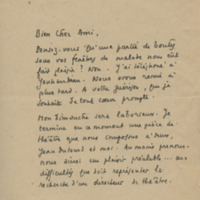 Bien Cher Ami,
Pensez-vous qu'une partie de boules
sous vos fenêtres de malade nous eût
fait plaisir ? Non. J'ai téléphoné à
. Nous avons remis à
plus tard. A votre guérison, que je
souhaite de tout cœur prompte.
Mon dimanche sera laborieux. Je
termine en ce moment une pièce de
théâtre que nous composons à deux,
Jean et moi. Au moins prenons-
nous ainsi un plaisir préalable aux
difficultés que doit représenter la
recherche d'un directeur de théâtre.